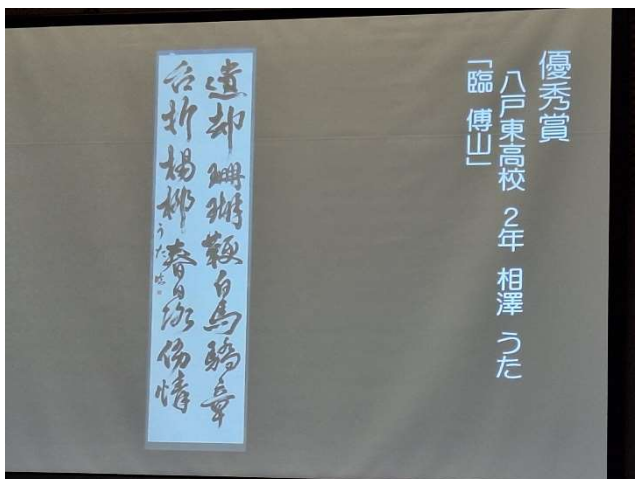 優秀賞
八戸東高校 2年 相澤 うた
「臨 傅山」
遺却珊瑚鞭白馬驕章
台折楊柳春日路傍情
うた臨